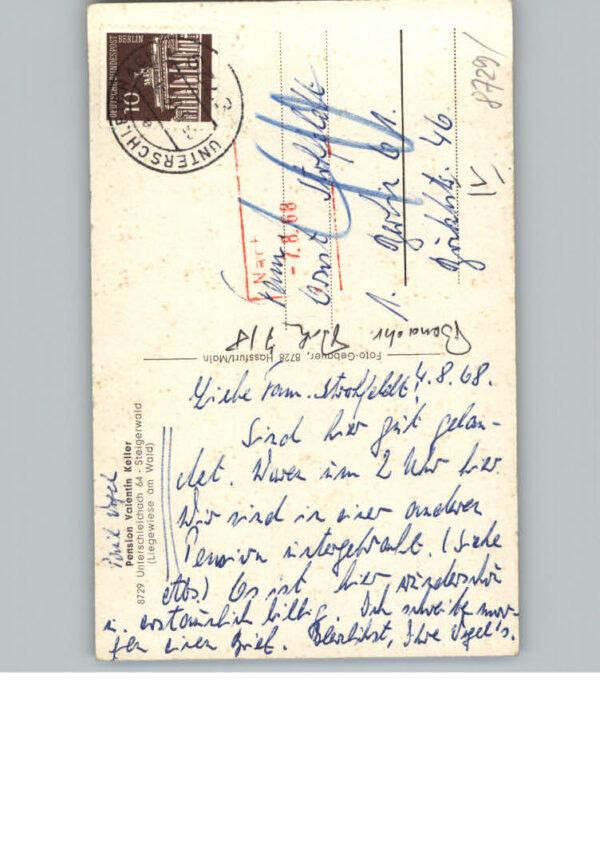 DEUTSCHE BUNDESPOST
BERLIN
10
UNTERSCHL
8729/
Nach
- 7.8.68
Fam.
Ernst Strohfeldt
1. Berlin 61.
Görlitz 46.
Benachr.
7/8
Foto-Gebauer, 8728 Hassfurt/Main
Emil Vogel
Pension Valentin Keller
8729 Unterschleichach 64 - Steigerwald
(Liegewiese am Wald)
4.8.68.
Liebe Fam. Strohfeldt!
Sind hier gut gelan-
det. Waren um 2 Uhr hier.
Wir sind in einer anderen
Pension untergebracht. (Siehe
Abs.) Es ist hier wunderschön
u. erstaunlich billig. Ich schreibe mor-
gen einen Brief. Herzlichst, Ihre Vogel's.